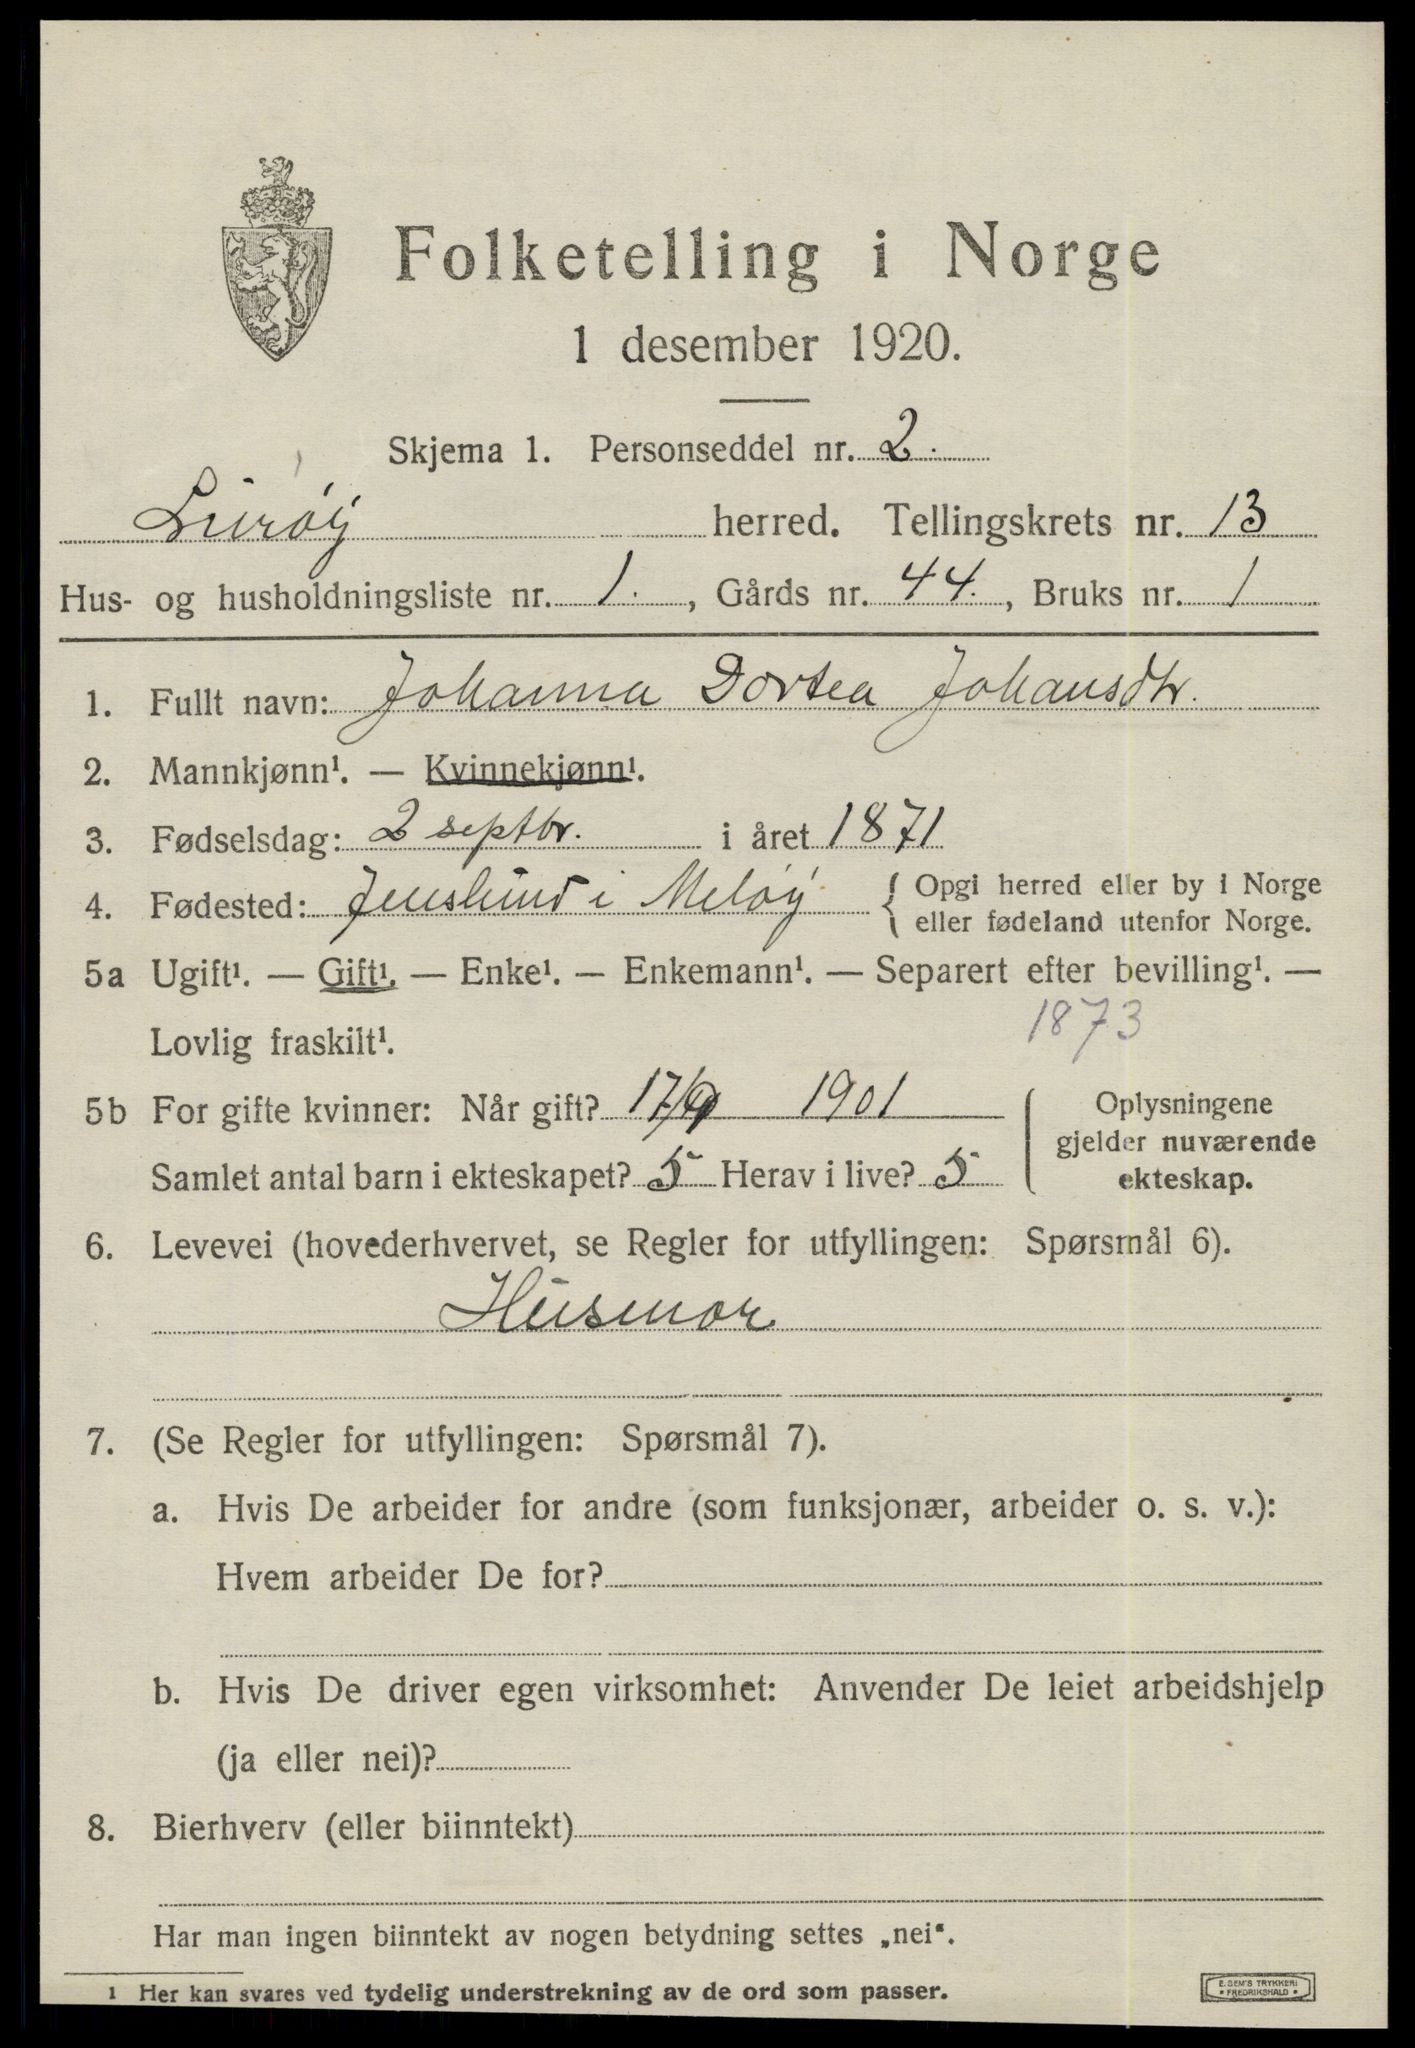 Folketelling i Norge
1 desember 1920.
Skjema 1. Personseddel nr. 2.
Lurøy herred. Tellingskrets nr. 13
Hus- og husholdningsliste nr. 1., Gårds nr. 44., Bruks nr. 1
1. Fullt navn: Johanna Dortea Johansdtr.
2. Mannkjønn¹. — Kvinnekjønn¹.
3. Fødselsdag: 2 septbr. i året 1871
4. Fødested: Jenslund i Meløy { Opgi herred eller by i Norge
eller fødeland utenfor Norge.
5a Ugift¹. — Gift¹. — Enke¹. — Enkemann¹. — Separert efter bevilling¹. —
Lovlig fraskilt¹. 1873
5b For gifte kvinner: Når gift? 17/9 1901
Samlet antal barn i ekteskapet? 5 Herav i live? 5
Oplysningene
gjelder nuværende
ekteskap.
6. Levevei (hovederhvervet, se Regler for utfyllingen: Spørsmål 6).
Husmor
7. (Se Regler for utfyllingen: Spørsmål 7).
a. Hvis De arbeider for andre (som funksjonær, arbeider o. s. v.):
Hvem arbeider De for?
b. Hvis De driver egen virksomhet: Anvender De leiet arbeidshjelp
(ja eller nei)?
8. Bierhverv (eller biinntekt)
Har man ingen biinntekt av nogen betydning settes „nei“.
1 Her kan svares ved tydelig understrekning av de ord som passer.
E. SEM'S TRYKKERI
• FREDRIKSHALD •